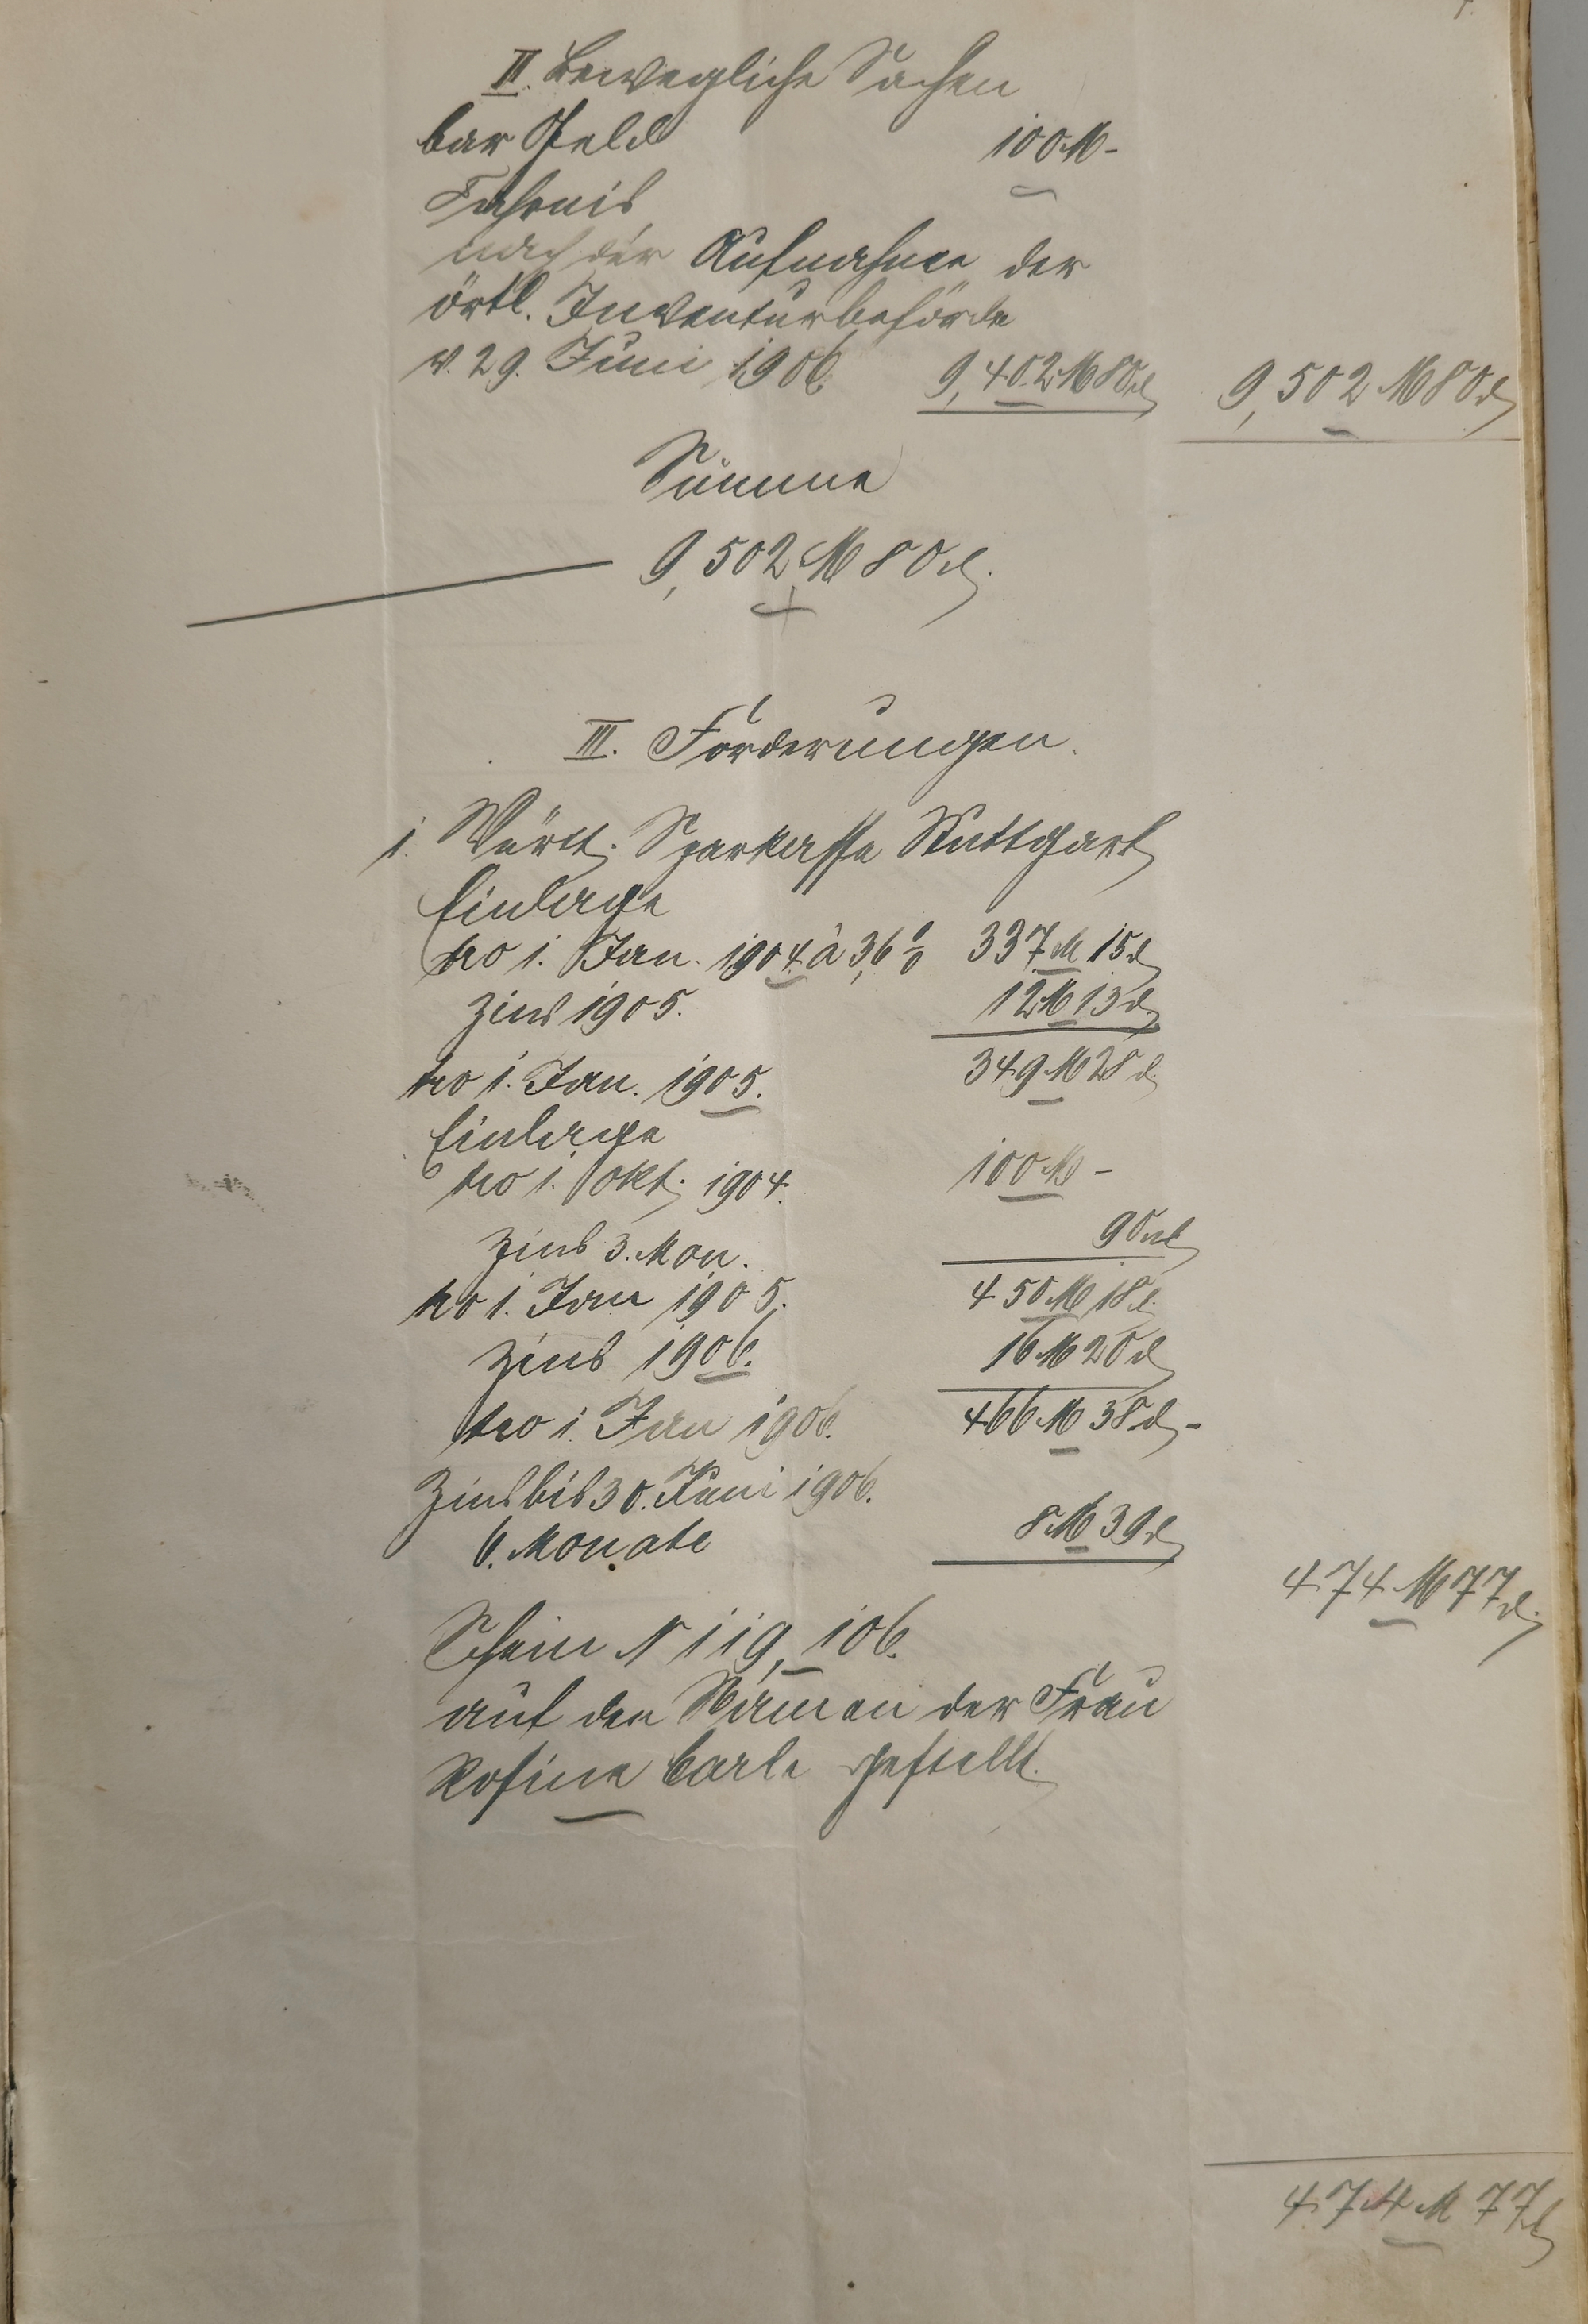 II. Bewegliche Sachen
bar Geld 100 M -
Fahrnis
nach der Aufnahme der
örtl. Inventurbehörde
v. 29. Juni 1906. 9,402 M 80 ₰ 9,502 M 80 ₰
Summe
9,502 M 80 ₰.
III. Forderungen.
1. Württ. Sparkasse Stuttgart
Einlage
pro 1. Jan. 1904 à 3,6 % 337 M 15 ₰
Zins 1905. 12 M 13 ₰
pro 1. Jan. 1905. 349 M 28 ₰
Einlage
pro 1. Okt. 1904. 100 M -
Zins 3. Mon. 90 ₰
pro 1. Jan 1905. 450 M 18 ₰
Zins 1906. 16 M 20 ₰
pro 1. Jan 1906. 466 M 38 ₰ -
Zins bis 30. Juni 1906.
6. Monate 8 M 39 ₰
474 M 77 ₰.
Schein N 119,106.
auf den Namen der Frau
Rosine Carle gestellt.
474 M 77 ₰